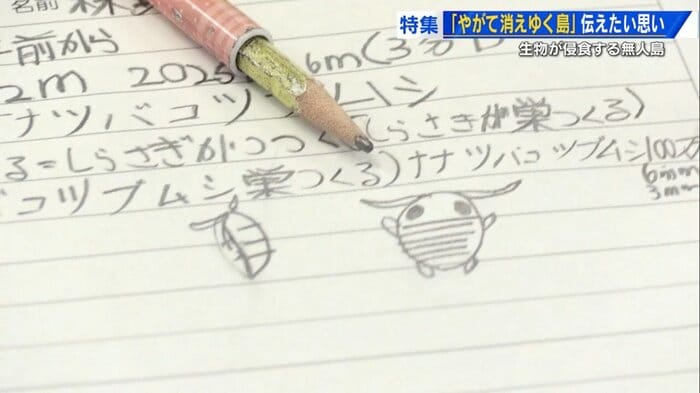 特集 「やがて消えゆく島」伝えたい思い
生物が侵食する無人島
名前
年前から
2m 2025 6m(3
ナナツバコツブムシ
る=しらさぎがつつく(しらさぎが巣つくる)
コツブムシ 巣つくる)ナナツバコツブムシ100万
6mm
3mm